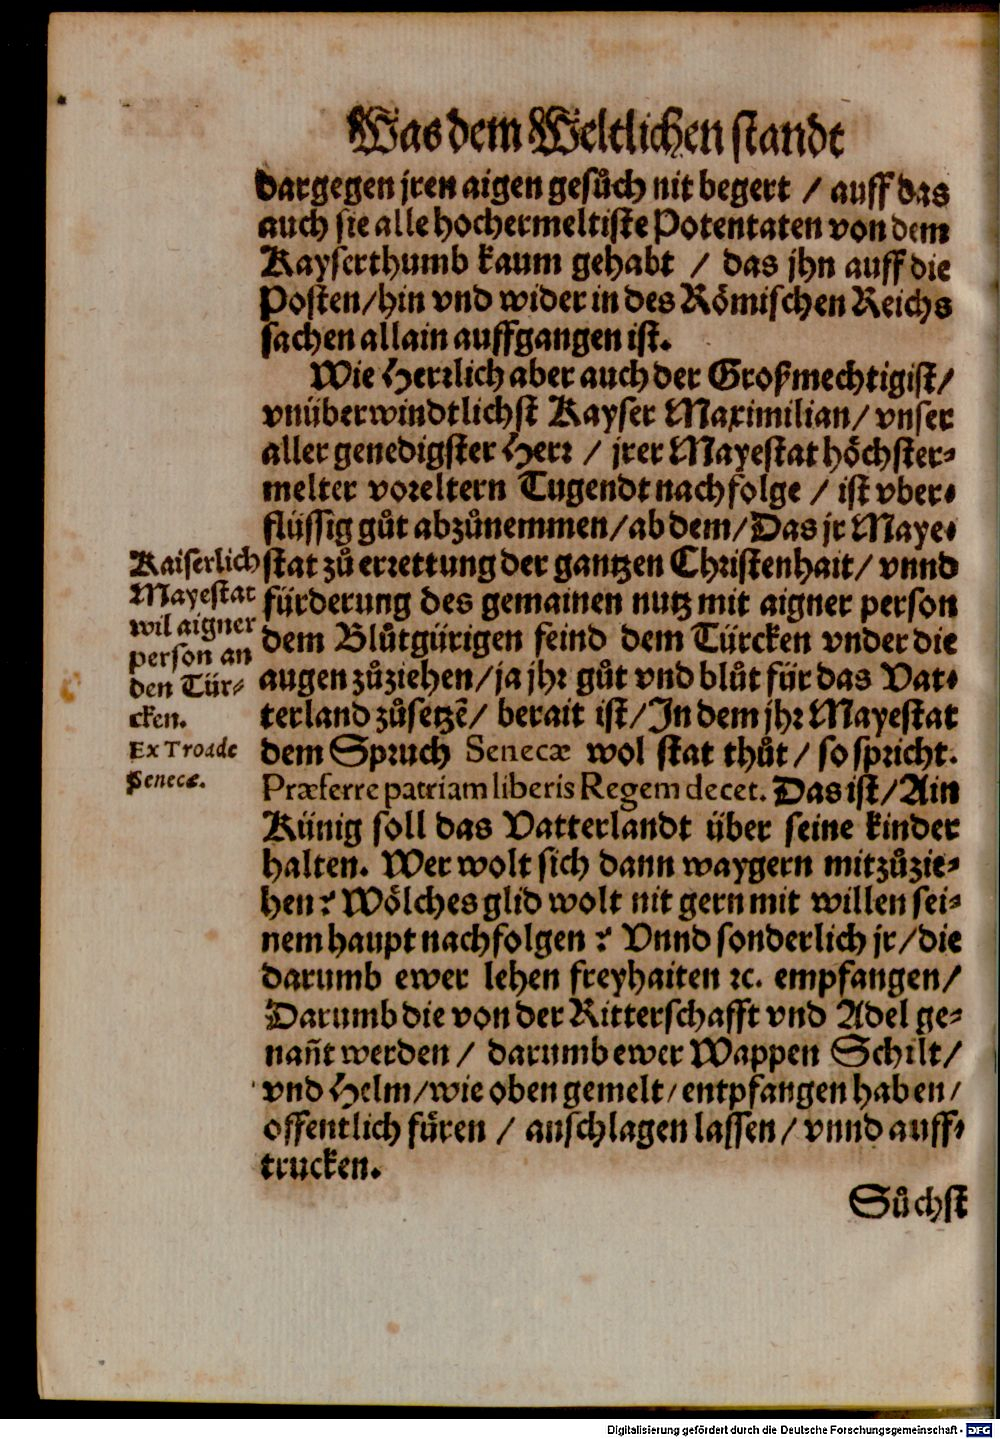 Was dem Weltlichen standt
dargegen jren aigen gesůch nit begert / auff das
auch sie alle hochermeltiste Potentaten von dem
Kayserthumb kaum gehabt / das jhn auff die
Posten/hin vnd wider in des Römischen Reichs
sachen allain auffgangen ist.
Wie Herꝛlich aber auch der Großmechtigist/
vnüberwindtlichst Kayser Maximilian/ vnser
aller genedigster Herꝛ / jrer Mayestat höchster-
melter voꝛeltern Tugendt nachfolge / ist vber-
flüssig gůt abzůnemmen/ab dem/Das jr Maye-
stat zů erꝛettung der gantzen Chꝛistenhait/ vnnd
fürderung des gemainen nutz mit aigner person
dem Blůtgürigen feind dem Türcken vnder die
augen zůziehen/ja jhꝛ gůt vnd blůt für das Vat-
terland zůsetzẽ/ berait ist/In dem jhꝛ Mayestat
dem Spꝛuch Senecæ wol stat thůt/ so spꝛicht.
Præferre patriam liberis Regem decet. Das ist/Ain
Künig soll das Vatterlandt über seine kinder
halten. Wer wolt sich dann waygern mitzůzie-
hen? Wölches glid wolt nit gern mit willen sei-
nem haupt nachfolgen? Vnnd sonderlich jr/die
darumb ewer lehen freyhaiten ꝛc. empfangen/
Darumb die von der Ritterschafft vnd Adel ge-
nañt werden/ darumb ewer Wappen Schilt/
vnd Helm/wie oben gemelt/entpfangen haben/
offentlich füren / anschlagen lassen/ vnnd auff-
trucken.
Kaiserlich
Mayestat
wil aigner
person an
den Tür-
cken.
Ex Troade
Senecæ.
Sůchst
Digitalisierung gefördert durch die Deutsche Forschungsgemeinschaft - DFG